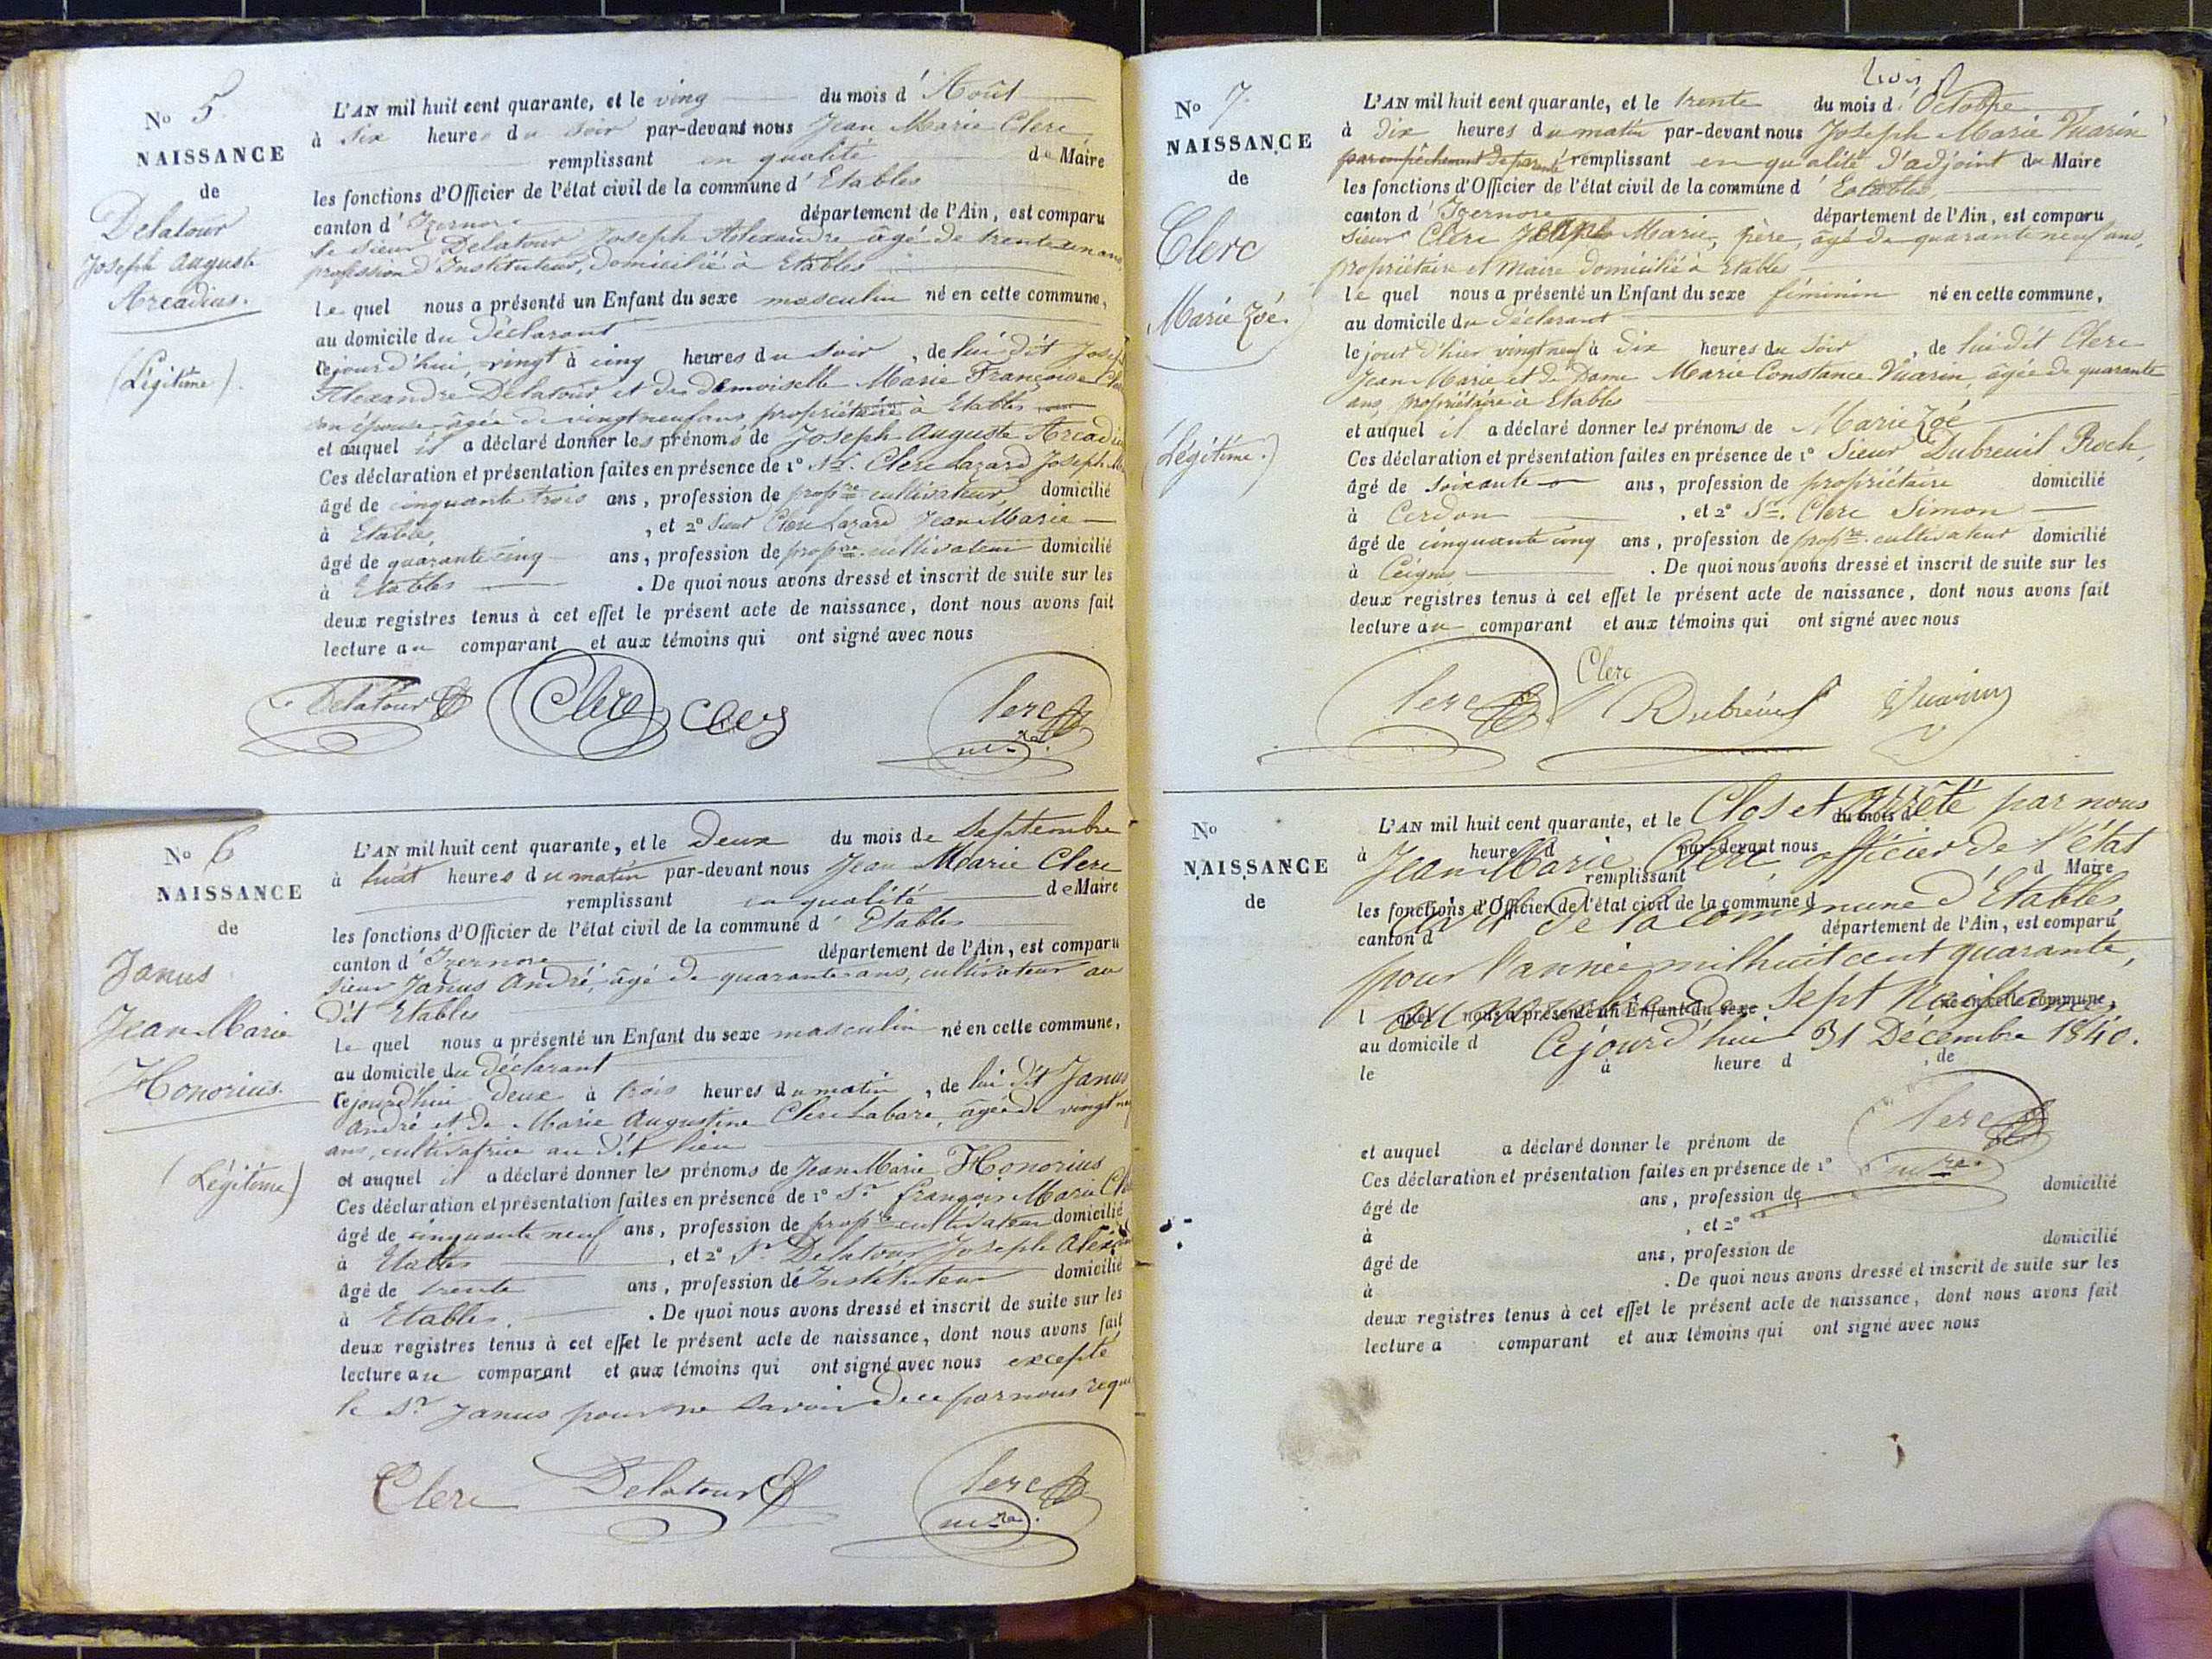 No 5.
NAISSANCE
de
Delatour
Joseph Auguste
Arcadius.
(Légitime).
L'AN mil huit cent quarante, et le ving du mois d'Août
à six heures du soir par-devant nous Jean Marie Clerc
remplissant en qualité de Maire
les fonctions d'Officier de l'état civil de la commune d'Etables
canton d'Izernore département de l'Ain, est comparu
le sieur Delatour Joseph Alexandre âgé de trente un ans
profession d'Instituteur, domicilié à Etables
lequel nous a présenté un Enfant du sexe masculin né en cette commune,
au domicile du déclarant
cejourd'hui, vingt à cinq heures du soir, de lui dit Joseph
Alexandre Delatour et de demoiselle Marie Françoise
son épouse âgée de vingt neuf ans, propriétaire à Etables
et auquel il a déclaré donner les prénoms de Joseph Auguste Arcadius
Ces déclaration et présentation faites en présence de 1° Sr. Clerc Lazard Joseph
âgé de cinquante trois ans, profession de propre cultivateur domicilié
à Etables, et 2° Sieur Clerc Lazard Jean Marie
âgé de quarante cinq ans, profession de propre cultivateur domicilié
à Etables. De quoi nous avons dressé et inscrit de suite sur les
deux registres tenus à cet effet le présent acte de naissance, dont nous avons fait
lecture au comparant et aux témoins qui ont signé avec nous
Delatour Clerc Clerc Clerc
mre
No 6
NAISSANCE
de
Janus
Jean Marie
Honorius.
(Légitime)
L'AN mil huit cent quarante, et le Deux du mois de Septembre
à huit heures du matin par-devant nous Jean Marie Clerc
remplissant en qualité de Maire
les fonctions d'Officier de l'état civil de la commune d'Etables
canton d'Izernore département de l'Ain, est comparu
sieur Janus André, âgé de quarante ans, cultivateur au
dit Etables
lequel nous a présenté un Enfant du sexe masculin né en cette commune,
au domicile du déclarant
cejourd'hui deux à trois heures du matin, de lui dit Janus
André et de Marie Augustine Clerc Labare, âgée de vingt
ans, cultivatrice au dit lieu
et auquel il a déclaré donner les prénoms de Jean Marie Honorius
Ces déclaration et présentation faites en présence de 1° Sr. françois Marie
âgé de cinquante neuf ans, profession de propre cultivateur domicilié
à Etables, et 2° Sr Delatour Joseph
âgé de trente ans, profession de Instituteur domicilié
à Etables. De quoi nous avons dressé et inscrit de suite sur les
deux registres tenus à cet effet le présent acte de naissance, dont nous avons fait
lecture au comparant et aux témoins qui ont signé avec nous excepté
le Sr Janus pour ne savoir de ce par nous requis
Clerc Delatour Clerc
mre.
trois
No 7.
NAISSANCE
de
Clerc
Marie Zoé.
(Légitime.)
L'AN mil huit cent quarante, et le trente du mois d'Octobre
à Dix heures du matin par-devant nous Joseph Marie Vuarin
par empêchement de parenté remplissant en qualité d'adjoint du Maire
les fonctions d'Officier de l'état civil de la commune d'Etables
canton d'Izernore département de l'Ain, est comparu
sieur Clerc Jean Marie, père, âgé de quarante neuf ans,
propriétaire et Maire domicilié à Etables
lequel nous a présenté un Enfant du sexe féminin né en cette commune,
au domicile du déclarant
le jour d'hier vingt neuf à dix heures du soir, de lui dit Clerc
Jean Marie et de Dame Marie Constance Vuarin, âgée de quarante
ans, propriétaire à Etables
et auquel il a déclaré donner les prénoms de Marie Zoé
Ces déclaration et présentation faites en présence de 1° Sieur Dubreuil Roch,
âgé de soixante ans, profession de propriétaire domicilié
à Cerdon, et 2° Sr. Clerc Simon
âgé de cinquante cinq ans, profession de propre cultivateur domicilié
à Ceignes. De quoi nous avons dressé et inscrit de suite sur les
deux registres tenus à cet effet le présent acte de naissance, dont nous avons fait
lecture au comparant et aux témoins qui ont signé avec nous
Clerc Clerc Dubreuil Vuarin
No
NAISSANCE
de
L'AN mil huit cent quarante, et le du mois d
à heure d par-devant nous
remplissant d Maire
les fonctions d'Officier de l'état civil de la commune d
canton d département de l'Ain, est comparu
Clos et arrêté par nous
Jean Marie Clerc, officier de l'état
civil de la commune d'Etables
pour l'année mil huit cent quarante,
au nombre de sept Naissances,
Cejourd'hui 31 Décembre 1840.
l quel nous a présenté un Enfant du sexe né en cette commune,
au domicile d
le à heure d , de
Clerc
mre
et auquel a déclaré donner le prénom de
Ces déclaration et présentation faites en présence de 1°
âgé de ans, profession de domicilié
à , et 2°
âgé de ans, profession de domicilié
à . De quoi nous avons dressé et inscrit de suite sur les
deux registres tenus à cet effet le présent acte de naissance, dont nous avons fait
lecture a comparant et aux témoins qui ont signé avec nous